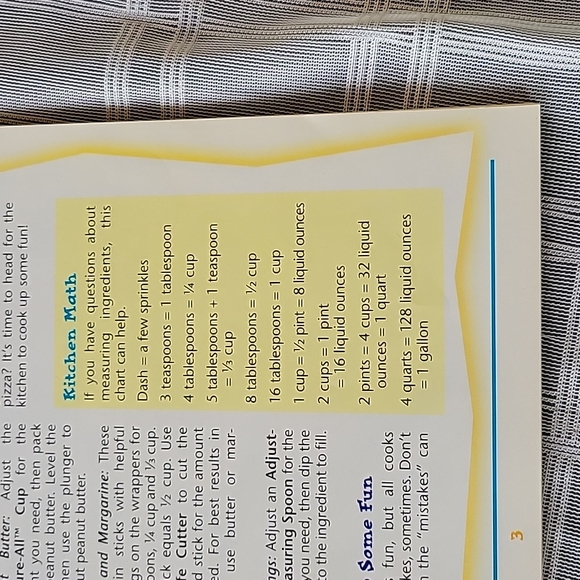 Butter: Adjust the
Cup for the
you need, then pack
butter. Level the
use the plunger to
peanut butter.
and Margarine: These
in sticks with helpful
on the wrappers for
¼ cup and ⅓ cup.
equals ½ cup. Use
Cutter to cut the
stick for the amount
For best results in
use butter or mar-
Adjust an Adjust-
Spoon for the
you need, then dip the
to the ingredient to fill.
Some Fun
fun, but all cooks
sometimes. Don't
the "mistakes" can
pizza? It's time to head for the
kitchen to cook up some fun!
Kitchen Math
If you have questions about
measuring ingredients, this
chart can help.
Dash = a few sprinkles
3 teaspoons = 1 tablespoon
4 tablespoons = ¼ cup
5 tablespoons + 1 teaspoon
= ⅓ cup
8 tablespoons = ½ cup
16 tablespoons = 1 cup
1 cup = ½ pint = 8 liquid ounces
2 cups = 1 pint
= 16 liquid ounces
2 pints = 4 cups = 32 liquid
ounces = 1 quart
4 quarts = 128 liquid ounces
= 1 gallon
3